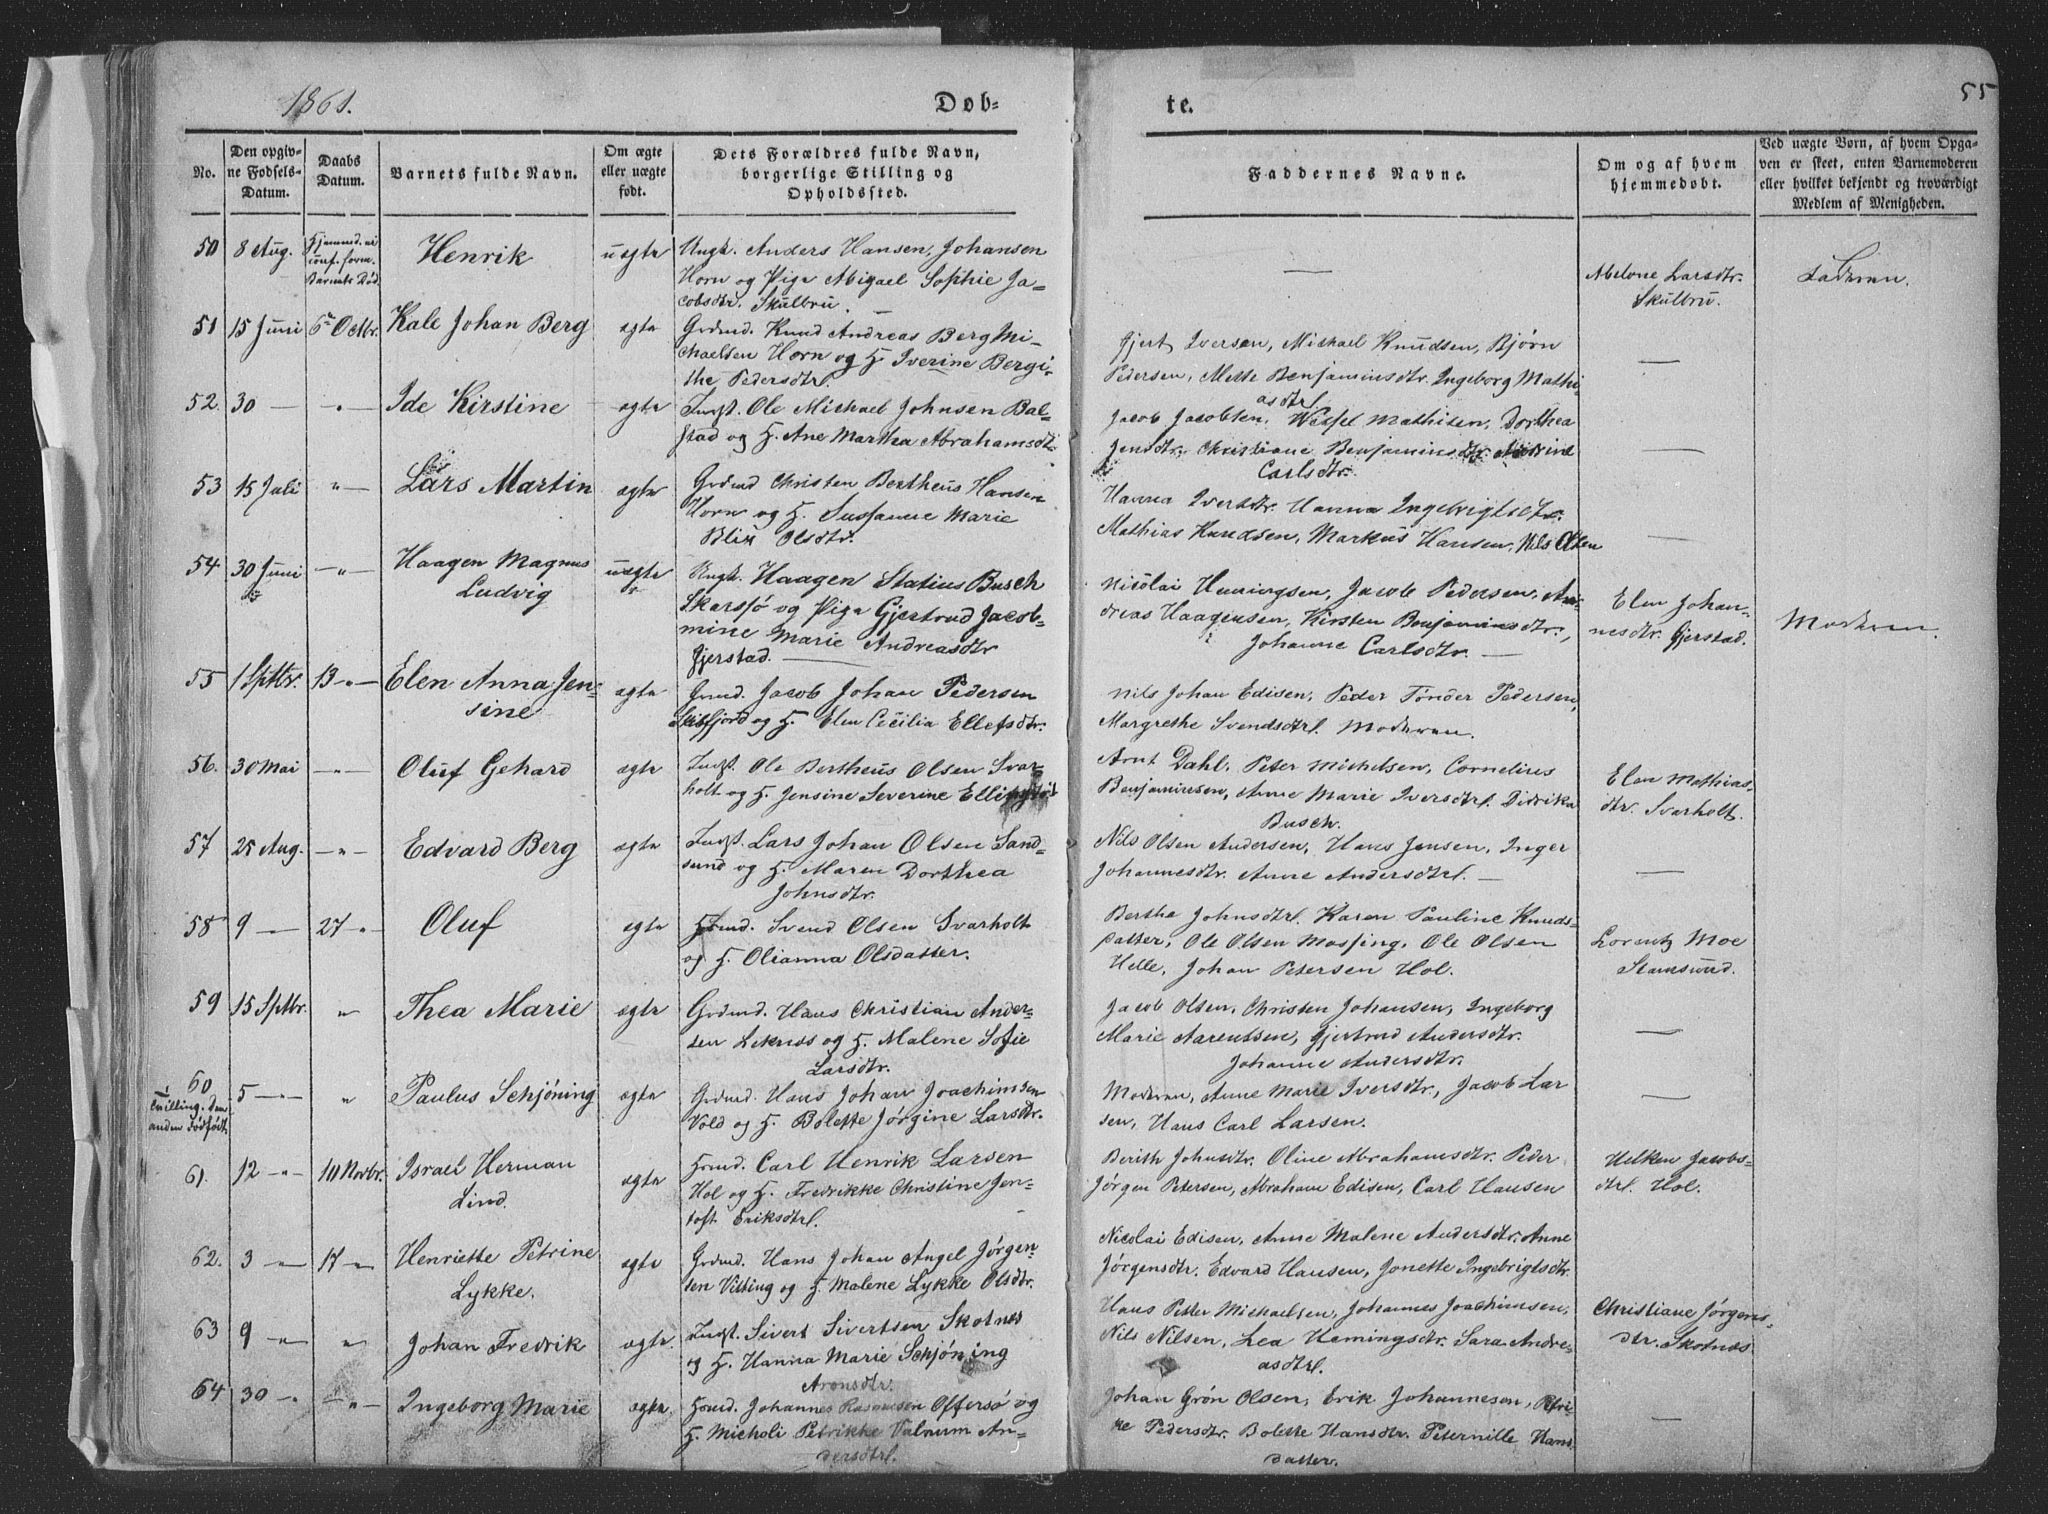 1861.
Døb-
te.
55
No.
Den opgiv-
ne Fødsels-
Datum.
Daabs
Datum.
Barnets fulde Navn.
Om ægte
eller uægte
født.
Dets Forældres fulde Navn,
borgerlige Stilling og
Opholdssted.
Faddernes Navne.
Om og af hvem
hjemmedøbt.
Ved uægte Børn, af hvem Opga-
ven er skeet, enten Barnemoderen
eller hvilket bekjendt og troværdigt
Medlem af Menigheden.
50 8 Aug. Hjemmed. ei
conf. form.
Barnets Død.
Henrik
uægte
Ungk. Anders Hansen, Johansen
Horn og Pige Abigael Sophie Ja-
cobsdtr. Skulbru.
—
Abelone Larsdtr.
Skulbru.
Faderen.
51 15 Juni 6te Octbr. Kale Johan Berg ægte
Grdmd. Knud Andreas Berg Mi-
chaelsen Horn og H. Iverine Bergi-
the Pedersdtr.
Gjert Iversen, Michael Knudsen, Bjørn
Pedersen, Mette Benjaminsdtr. Ingeborg Mathi-
asdtr.
—
52. 30 — — " — Ide Kirstine ægte
Indst. Ole Michael Johnsen Bal-
stad og H. Ane Martha Abrahamsdtr.
Jacob Jacobsen, Wessel Mathisen, Dorthea
Jensdtr. Christiane Benjaminsdtr.
Carlsdtr.
—
53 15 Juli " — Lars Martin ægte
Grdmd Christen Bertheus Hansen
Horn og H. Susanne Marie
Blix Olsdtr.
Hanna Iversdtr. Hanna Ingebrigtsdtr.
Mathias Knudsen, Markus Hansen, Nils Olsen
—
54 30 Juni — " — Haagen Magnus
Ludvig
uægte
Ungk. Haagen Statius Busch
Skarsjø og Pige Gjertrud Jacob-
mine Marie Andreasdtr
Gjerstad. —
Nicolai Hemingsen, Jacob Pedersen, An-
dreas Haagensen, Kirsten Benjaminsdtr.,
Johanne Carlsdtr. —
Elen Johan-
nesdtr. Gjerstad.
Moderen.
55 1 Sptbr. 13 — " — Elen Anna Jen-
sine
ægte
Grmd. Jacob Johan Pedersen
Skifjord og H. Elen Cecilia Ellefsdtr.
Nils Johan Edisen, Peder Tønder Pedersen,
Margrethe Svendsdtr. Moderen.
56. 30 Mai — " — Oluf Gehard ægte
Indst. Ole Bertheus Olsen Svar-
holt og H. Jensine Severine Ellingsdtr
Arnt Dahl, Peter Michelsen, Cornelius
Benjaminsen, Anne Marie Iversdtr. Didrika
Busch.
Elen Mathias-
dtr. Svarholt.
57 25 Aug. — " — Edvard Berg ægte
Indst. Lars Johan Olsen Sand-
sund og H. Maren Dorthea
Johnsdtr.
Nils Olsen Andersen, Hans Jensen, Inger
Johannesdtr. Anne Andersdtr. —
—
58 9 — 27 — " Oluf ægte
Grmd. Svend Olsen Svarholt
og H. Olianna Olsdatter.
Berthe Johnsdtr. Karen Pauline Knuds-
datter, Ole Olsen Mossing, Ole Olsen
Helle, Johan Petersen Hol.
Lorentz Moe
Stamsund.
59 15 Sptbr. " Thea Marie ægte
Grdmd. Hans Christian Ander-
sen Leknes og H. Malene Sofie
Larsdtr.
Jacob Olsen, Christen Johansen, Ingeborg
Marie Aarentsen, Gjertrud Andersdtr.
Johanne Andersdtr.
—
60
Tvilling. Den
anden dødfødt.
5 — " — " Paulus Schjöning ægte
Grdmd. Hans Johan Joachimsen
Vold og H. Bolette Jørgine Larsdtr.
Moderen, Anne Marie Iversdtr., Jacob Lar
sen, Hans Carl Larsen.
—
61. 12 — " — 10 Novbr. Israel Herman
Lind.
ægte
Grmd. Carl Henrik Larsen
Hol og H. Fredrikke Christine Jen-
toft Eriksdtr.
Berith Johnsdtr. Oline Abrahamsdtr. Peder
Jørgen Petersen, Abraham Edisen, Carl Hansen
Helken Jacobs-
dtr. Hol.
62. 3 — " — 17 — " — Henriette Petrine
Lykke.
ægte
Grdmd. Hans Johan Angel Jørgen-
sen Vitting og H. Malene Lykke Olsdtr.
Nicolai Edisen, Anne Malene Andersdtr. Anne
Jørgensdtr. Edvard Hansen, Jonette Ingebrigtsdtr.
63 9 — " — " Johan Fredrik ægte.
Indst. Sivert Sivertsen Skotnes
og H. Hanna Marie Schjöning
Aronsdtr.
Hans Petter Michaelsen, Johannes Joachimsen,
Nils Nilsen, Lea Hemingsdtr. Sara Andre-
asdtr.
Christiane Jørgens-
dtr. Skotnæs
64 30 — " — — " — Ingeborg Marie ægte.
Grmd. Johannes Rasmusen Offersø og
H. Micholi Petrikke Valnum An-
dersdtr.
Johan Grøn Olsen, Erik Johannesen, Petri-
ke Pedersdtr. Bolette Hansdtr. Peternille Hans
datter.
—